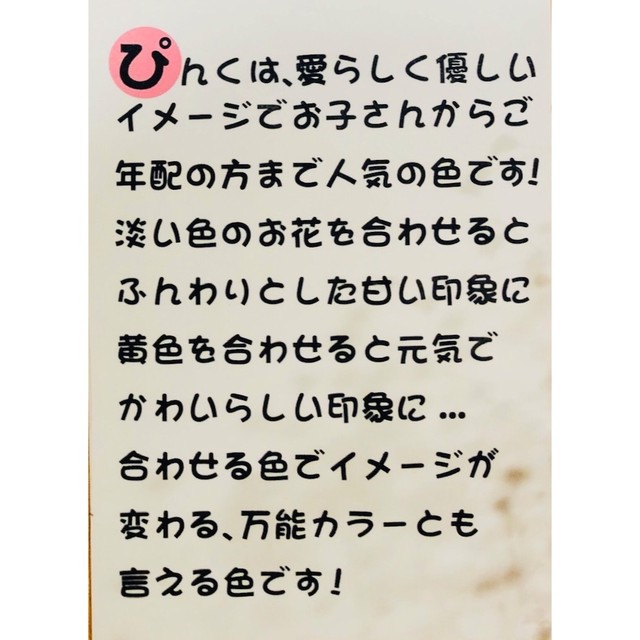 ぴんくは、愛らしく優しい
イメージでお子さんからご
年配の方まで人気の色です!
淡い色のお花を合わせると
ふんわりとした甘い印象に
黄色を合わせると元気で
かわいらしい印象に...
合わせる色でイメージが
変わる、万能カラーとも
言える色です!